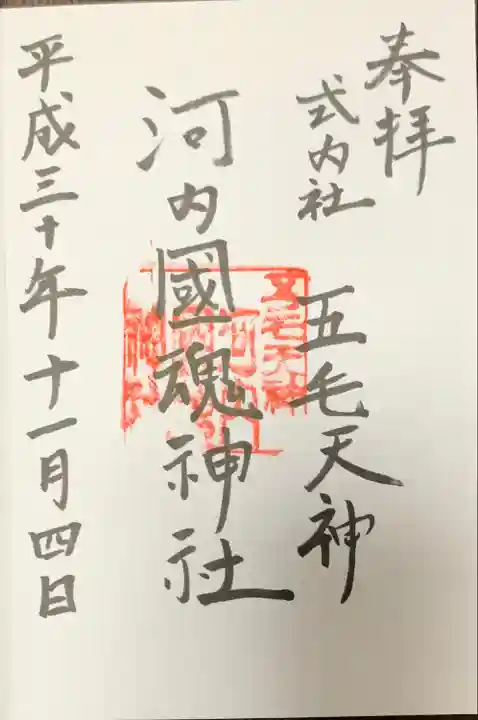 奉拝
式内社
五毛天神
河内國魂神社
平成三十年十一月四日
五毛天神